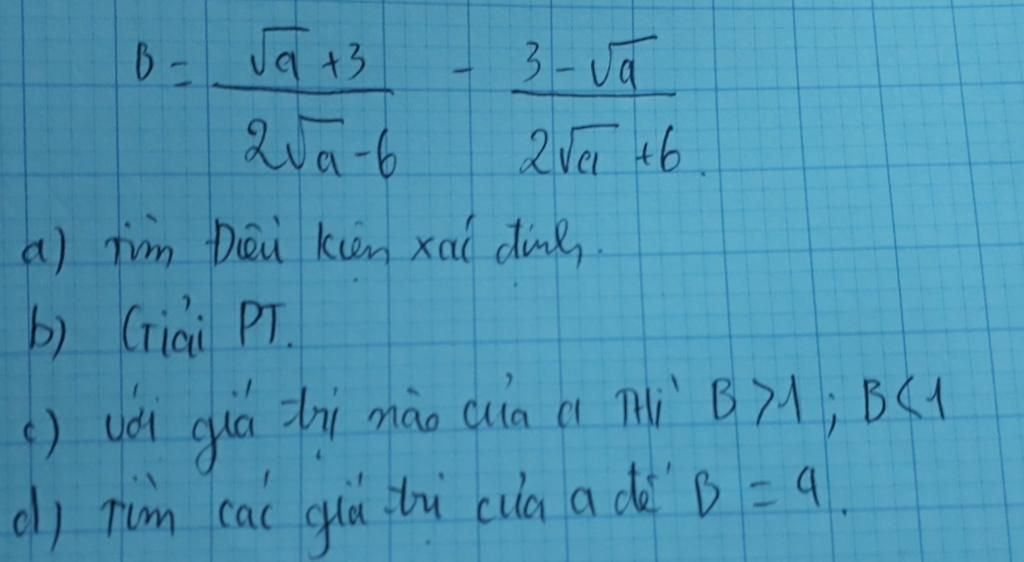 B = \frac{\sqrt{a} + 3}{2\sqrt{a} - 6} - \frac{3 - \sqrt{a}}{2\sqrt{a} + 6}.
a) Tìm Điều kiện xác định.
b) Giải PT.
c) với giá trị nào của a THÌ B > 1 ; B < 1
d) Tìm các giá trị của a để B = 4.